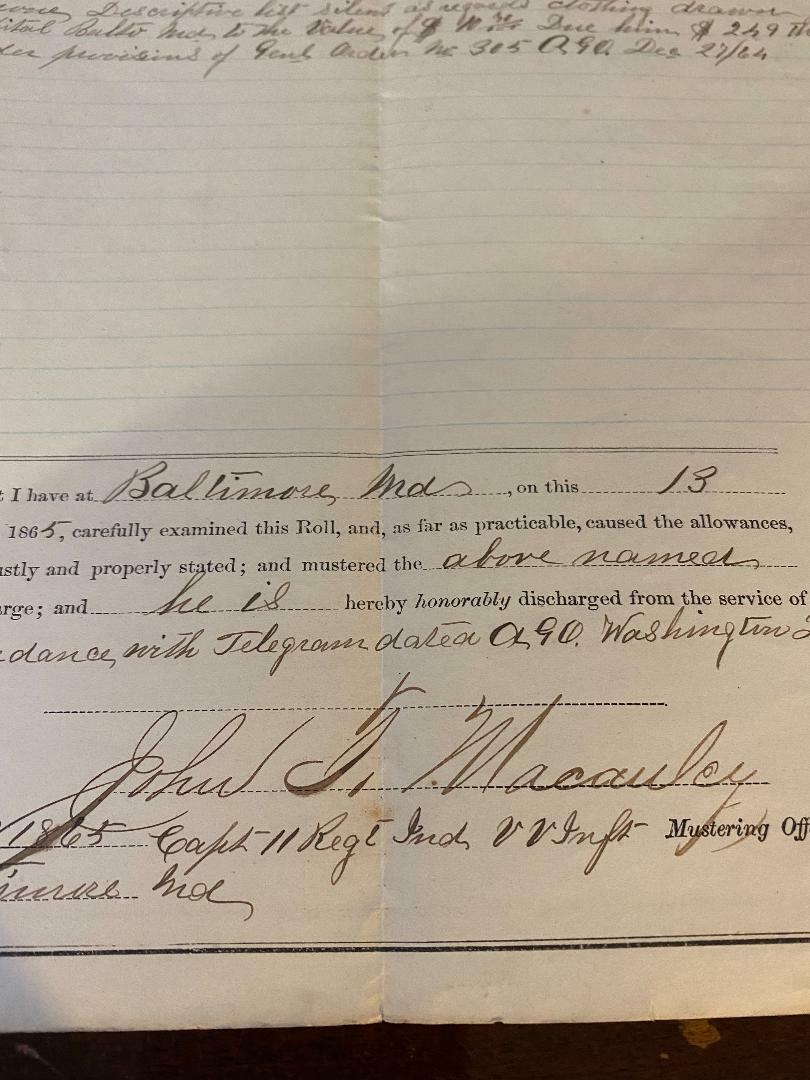 Descriptive list silent as regards clothing drawn
Balto Md to the Value of $ Due him $ 249
provisions of Genl Orders No 305 A.G.O. Dec 27/64
I have at Baltimore, Md, on this 13
1865, carefully examined this Roll, and, as far as practicable, caused the allowances,
ustly and properly stated; and mustered the above named
arge; and he is hereby honorably discharged from the service of
dance with Telegram dated A.G.O. Washington
John T. Macauley
1865 Capt 11 Regt Ind V V Inft Mustering Off
imore Md